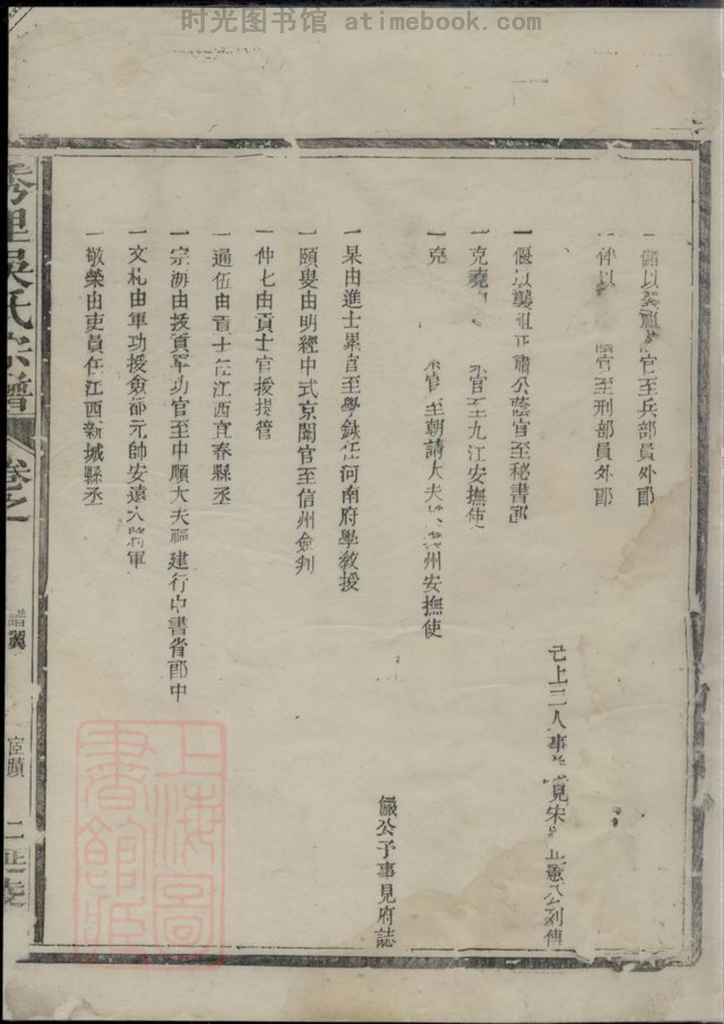 时光图书馆 atimebook.com
一 以 祖 官至兵部員外郎
一 以 官至刑部員外郎
已上三人事 見宋 公列傳
一偃以襲祖正肅公蔭官至秘書郎
一克堯 官至九江安撫使
一克 官至朝請大夫 州安撫使
儼公子事見府誌
一杲由進士累官至學錄任河南府學教授
一頤叟由明經中式京闈官至信州僉判
一仲七由貢士官授提管
一通伍由貢士任江西宜春縣丞
一宗海由援 軍功官至中順大夫福建行中書省郎中
一文札由軍功授僉都元帥安遠大將軍
一敬榮由吏員任江西新城縣丞
吳氏宗譜
卷之一
譜翼
宦蹟
二
上海圖書館藏